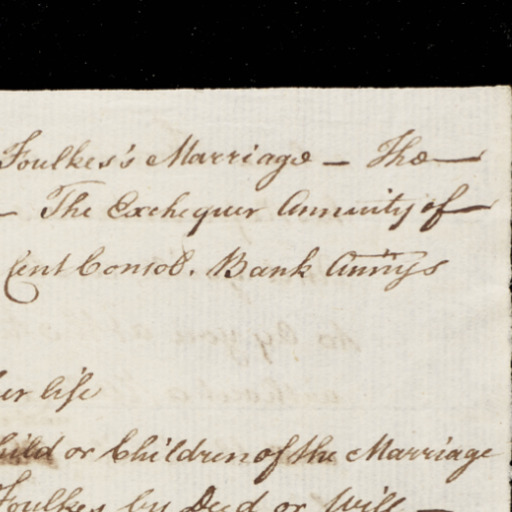 Foulkes's Marriage — The —
— The Exchequer Annuity of —
Cent Consol. Bank Ann'ys
er life
hild or Children of the Marriage
Foulkes by Deed or Will —